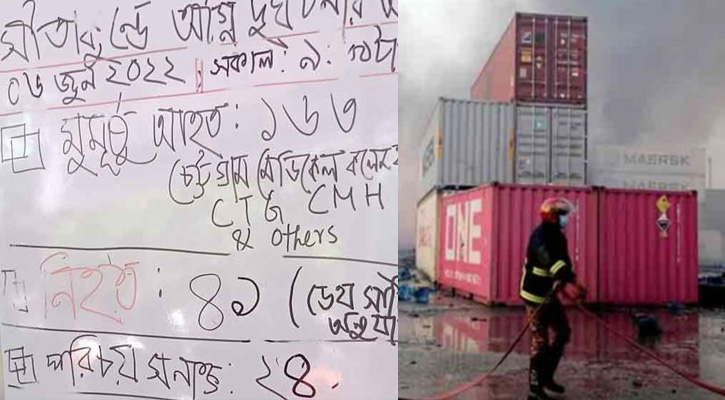 সীতাকুন্ডে অগ্নি দুর্ঘটনার
০৬ জুন ২০২২ সকাল: ৯:
মুমূর্ষু আহত: ১৬৩
(চট্টগ্রাম মেডিকেল কলেজ
CTG CMH
& others
নিহত: ৪১ (ডেথ সার্টি
অনুযা
পরিচয় সনাক্ত: ২৪.
MAERSK
ONE